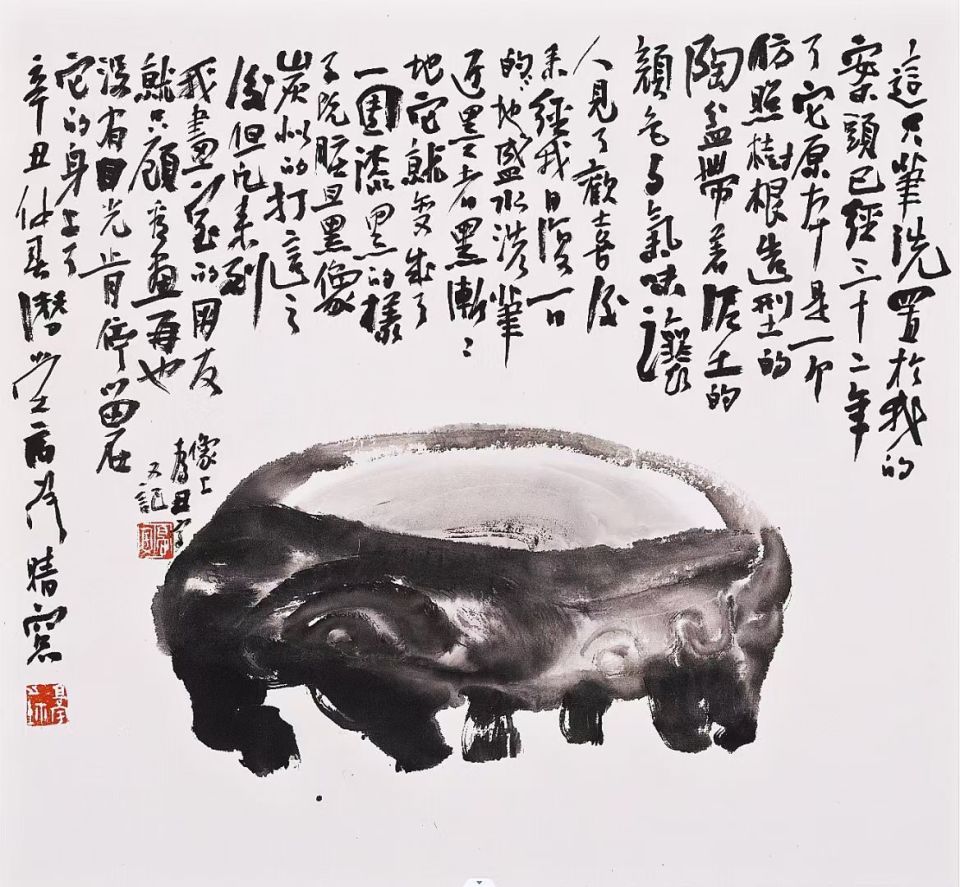 這只筆洗置於我的
案頭已經三十二年
了它原本是一
仿照樹根造型的
陶盆帶着泥土的
顏色与氣味讓
人見了歡喜後
来經我日復一日
的地盛水洗筆
近墨者黑漸〻
地它就變成了
一團漆黑的樣
子既脏且黑像
炭似的打這之
後但凡来到
我畫室的朋友
就只顧看畫再也
沒有目光肯停留在
它的身上了
辛丑仲春潛堂晴窗
像上
丑字
又記